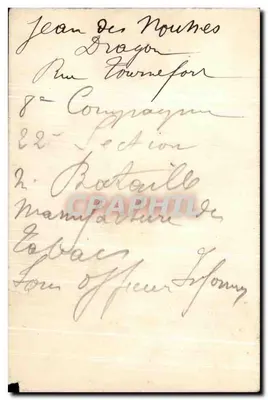 Jean des Noulhes
Dragon
Rue Tournefort
8e Compagnie
22e Section
Bataille
CPAPHIL
Manufacture des
Tabacs
Sous officier